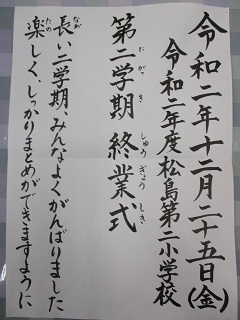 令和二年十二月二十五日(金)
令和二年度松島第二小学校
第二学期 終業式
にがっき しゅうぎょうしき
長い二学期、みんなよくがんばりました
なが
楽しく、しっかりまとめができますように
たの